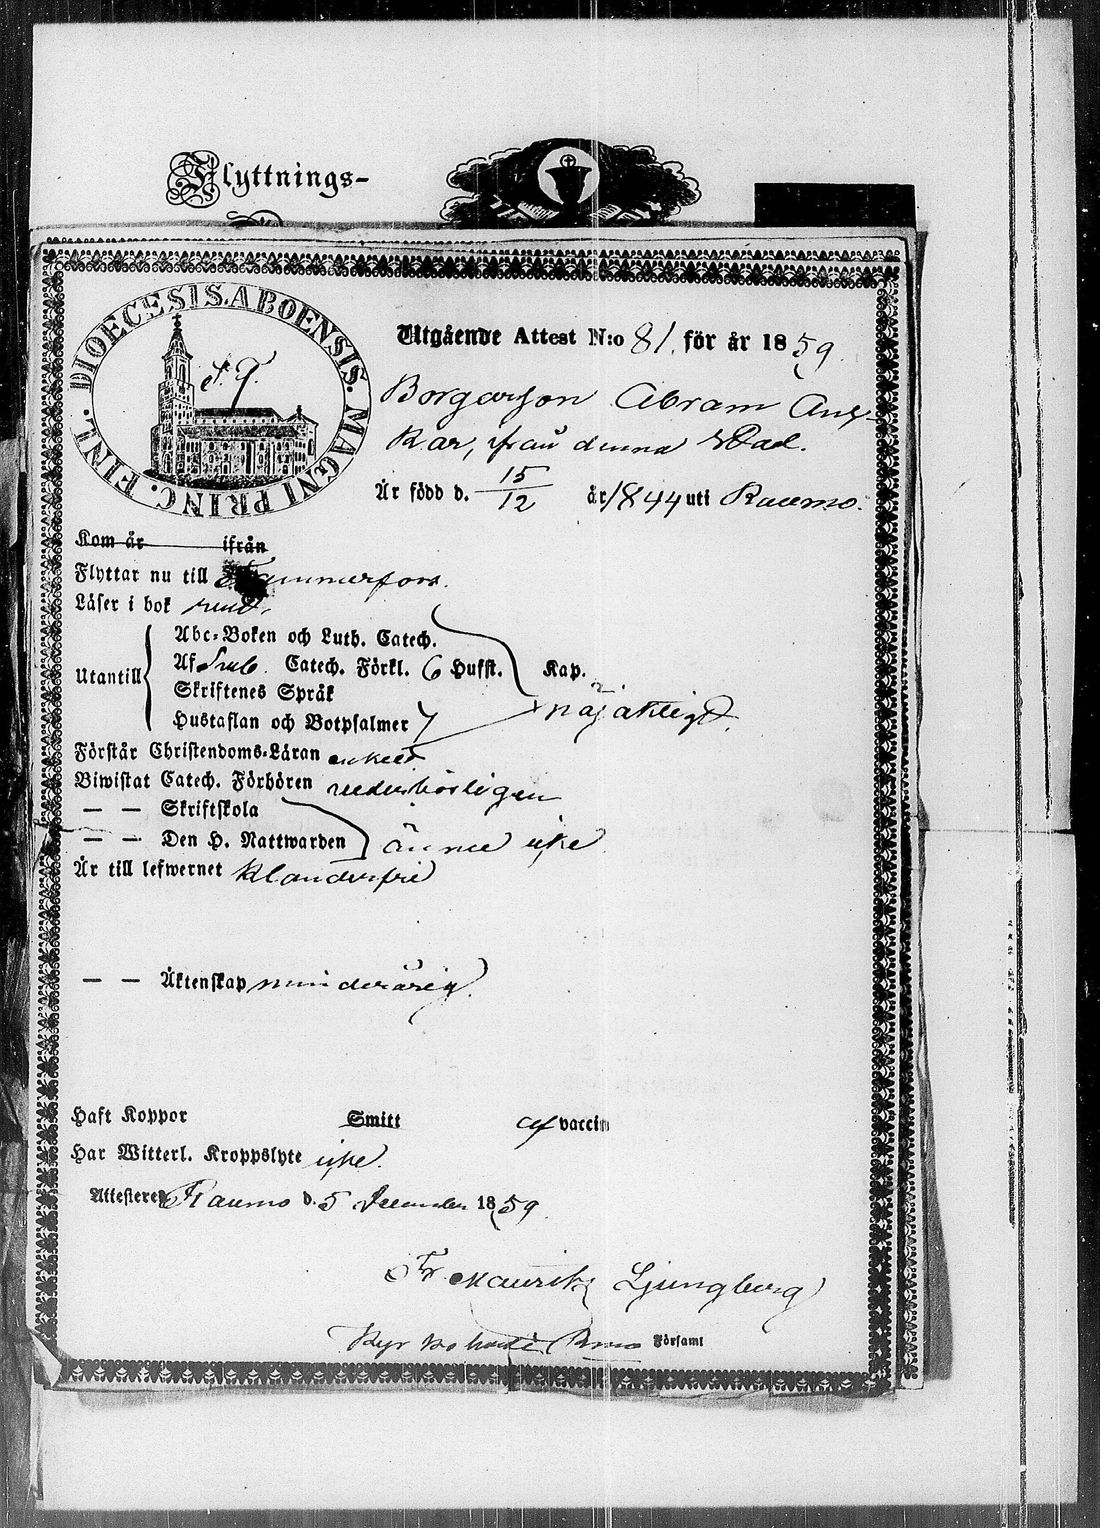 Flyttnings-
DIOECESIS. ABOENSIS. MAGNI PRINC. FINL.
S. T.
Utgående Attest N:o 81. för år 1859.
Borgarson Abram Ans-
kar, från denna Stad.
Är född d. 15/12 år 1844 uti Raumo.
Kom år ifrån
Flyttar nu till Tammerfors.
Läser i bok rent.
Abc-Boken och Luth. Catech.
Af Sveb. Catech. Förkl. 6 Hufst. Kap.
Utantill
Skriftenes Språk
nöjaktigt.
Hustaflan och Botpsalmer 7
Förstår Christendoms-Läran enkelt
Biwistat Catech. Förhören vederbörligen
— — Skriftskola
— — Den H. Nattwarden ännu icke
Är till lefwernet klanderfri
— — Äktenskap minderårig.
Haft Koppor Smitt af vaccin
Har Witterl. Kroppslyte icke.
Attesterer Raumo d. 5 December 1859.
Fr. Mauritz Ljungberg
Kyrkoherde i Rmo Församl